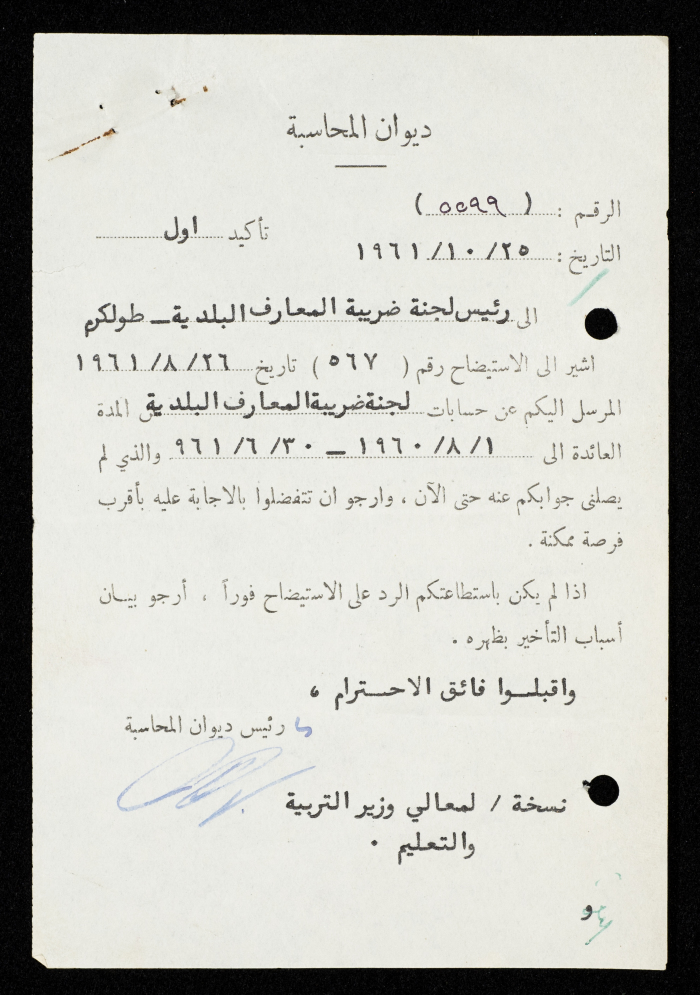 ديوان المحاسبة
الرقم : ( ٥٥٩٩ )
تأكيد اول
التاريخ : ٢٥/ ١٠/ ١٩٦١
الى رئيس لجنة ضريبة المعارف البلدية ــ طولكرم
اشير الى الاستيضاح رقم ( ٥٦٧ ) تاريخ ٢٦/ ٨/ ١٩٦١
المرسل اليكم عن حسابات لجنة ضريبة المعارف البلدية عن المدة
العائدة الى ١/ ٨/ ١٩٦٠ ــ ٣٠/ ٦/ ٩٦١ والذي لم
يصلنى جوابكم عنه حتى الآن ، وارجو ان تتفضلوا بالاجابة عليه بأقرب
فرصة ممكنة .
اذا لم يكن باستطاعتكم الرد على الاستيضاح فوراً ، أرجو بيــان
أسباب التأخير بظهره .
واقبلــوا فائق الاحــترام ،
رئيس ديوان المحاسبة
نسخة / لمعالي وزير التربية
والتعليم .
و